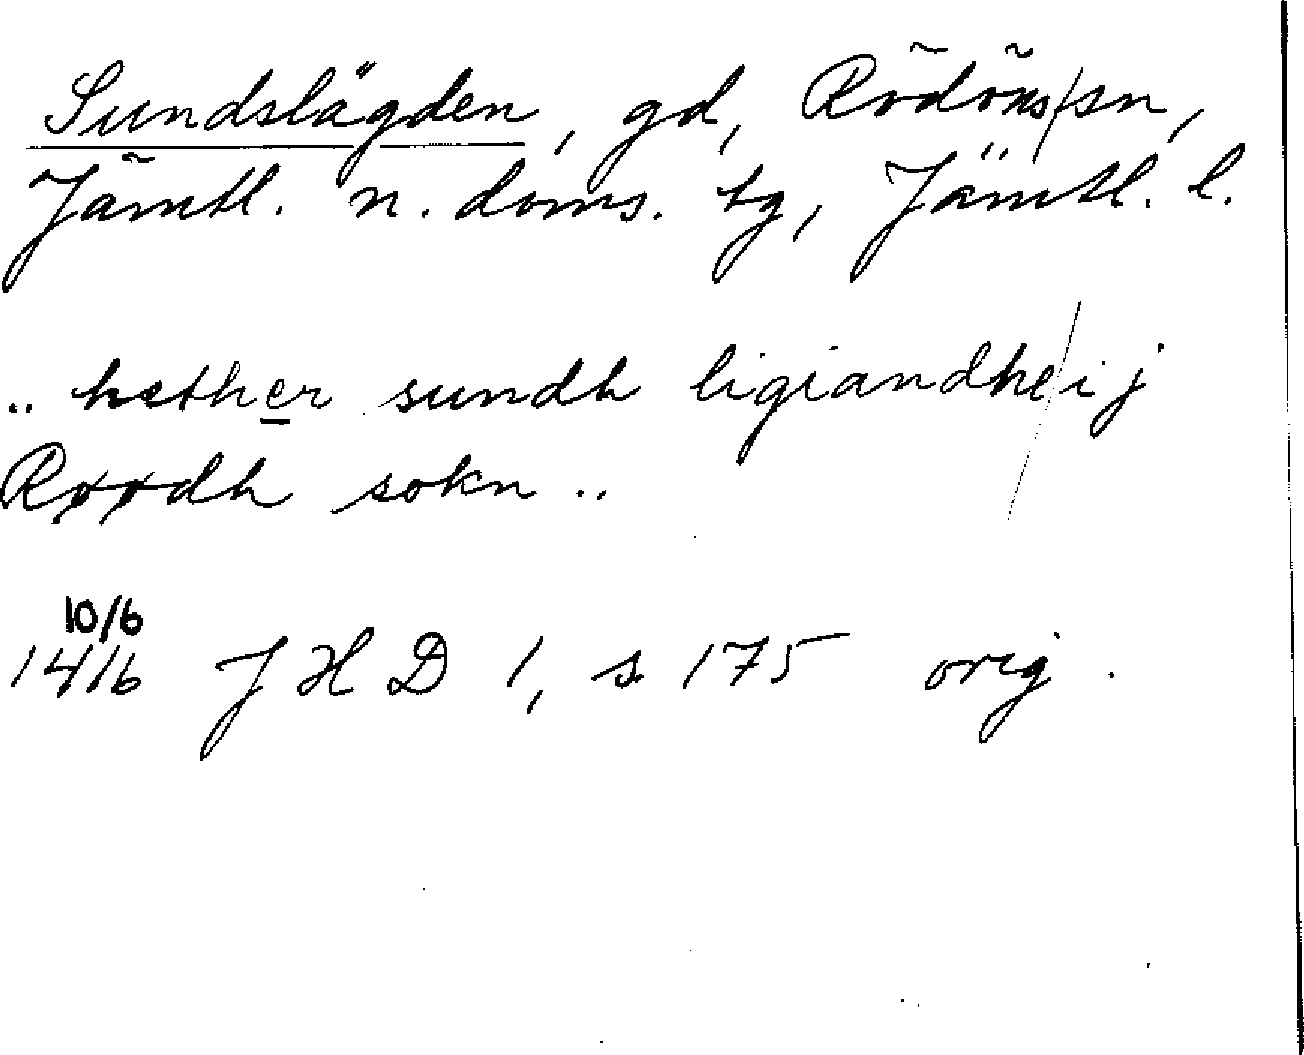 Sundslägden, gd, Rödöns/sn,
Jämtl. n. doms. tg, Jämtl. l.
.. hether sundh ligiandhe/i j
Røødh sokn ..
10/6
1416 J H D 1, s 175 orig.